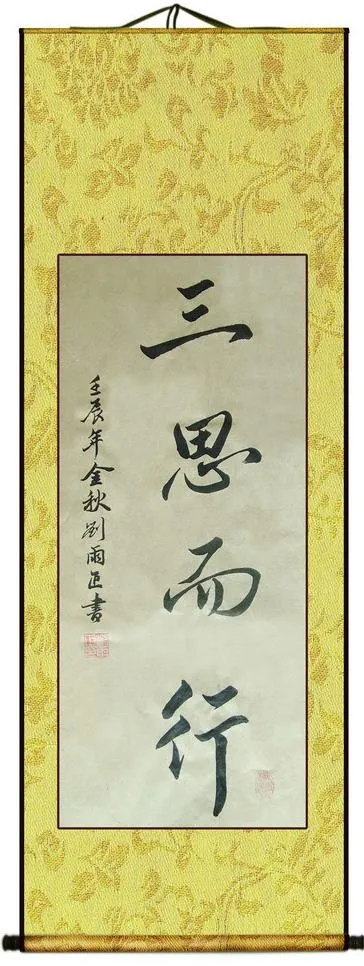 三思而行
壬辰年金秋劉雨臣書